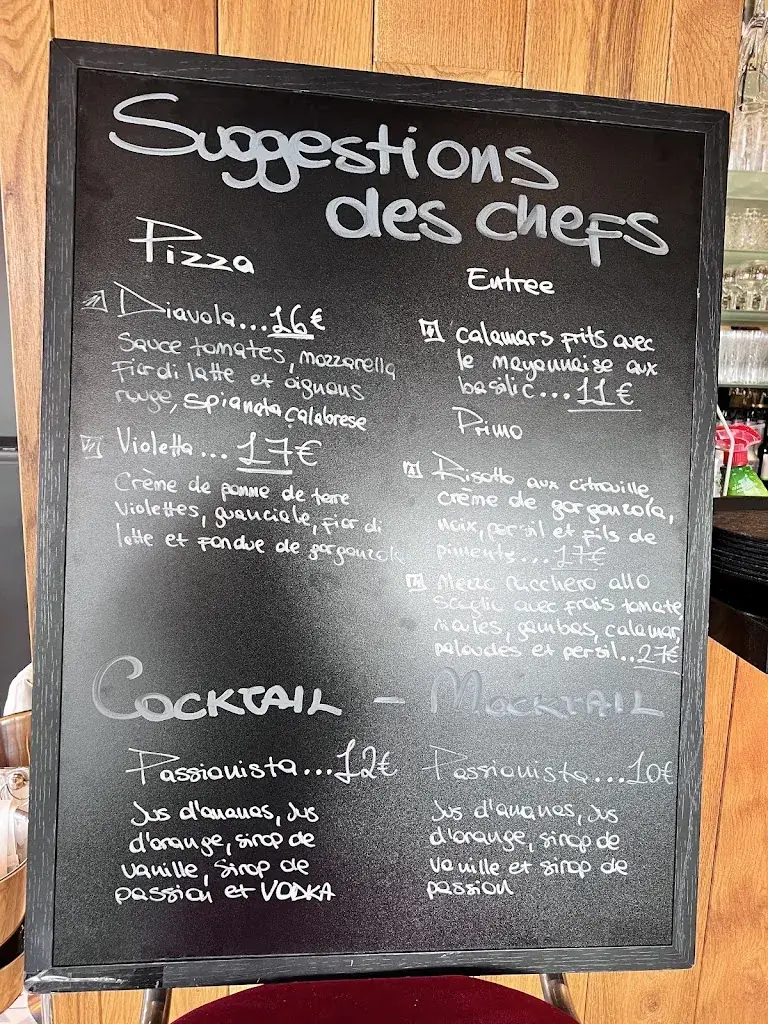 Suggestions
des chefs
Pizza
Diavola...16€
Sauce tomates, mozzarella
Fior di latte et oignons
rouge, spianata calabrese
Violetta...17€
Crème de pomme de terre
violettes, guanciale, fior di
latte et fondue de gorgonzola
Entree
calamars frits avec
le mayonnaise aux
basilic...11€
Primo
Risotto aux citrouille,
crème de gorgonzola,
noix, persil et fils de
piments...17€
Mezzo pacchero allo
Scoglio avec frais tomate,
moules, gambas, calamar,
palourdes et persil..27€
COCKTAIL - MOCKTAIL
Passionista...12€
Jus d'ananas, Jus
d'orange, sirop de
vanille, sirop de
passion et VODKA
Passionista...10€
Jus d'ananas, Jus
d'orange, sirop de
vanille et sirop de
passion